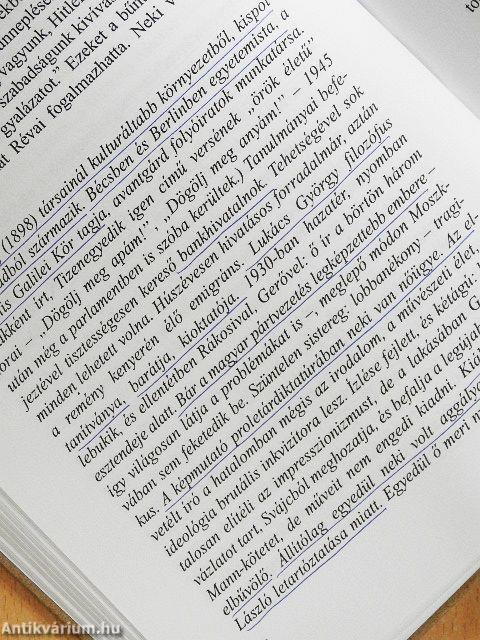 ünneplése
vagyunk, Hitler
szabadságunk kivívás
gyalázatot." Ezeket a bűn
at Révai fogalmazhatta. Neki v
(1898) társainál kulturáltabb környezetből, kispol
ból származik. Bécsben és Berlinben egyetemista, a
is Galilei Kör tagja, avantgárd folyóiratok munkatársa.
kként írt, Tizenegyedik igen című versének „örök életű"
orai – „Dögölj meg apám!", „Dögölj meg anyám!" – 1945
után még a parlamentben is szóba kerültek.) Tanulmányai befe-
jeztével tisztességesen kereső bankhivatalnok. Tehetségével sok
minden lehetett volna. Húszévesen hivatásos forradalmár, aztán
a remény kenyerén élő emigráns. Lukács György filozófus
tanítványa, barátja, kioktatója. 1930-ban hazatér, nyomban
lebukik, és ellentétben Rákosival, Gerővel: ő ír a börtön három
esztendeje alatt. Bár a magyar pártvezetés legképzettebb embere –
így világosan látja a problémákat is –, meglepő módon Moszk-
vában sem feketedik be. Szüntelen sistereg: lobbanékony – tragi-
kus. A képmutató proletárdiktatúrában neki van nőügye. Az el-
vetélt író a hatalomban mégis az irodalom, a művészeti élet,
ideológia brutális inkvizítora lesz. Ízlése fejlett, és kétlaki: h
talosan elítéli az impresszionizmust, de a lakásában G
vázlatot tart, Svájcból meghozatja, és befalja a legújab
Mann-kötetet, de műveit nem engedi kiadni. Kiá
elbűvölő. Állítólag egyedül neki volt aggálya
László letartóztatása miatt. Egyedül ő meri n
Antikvárium.hu